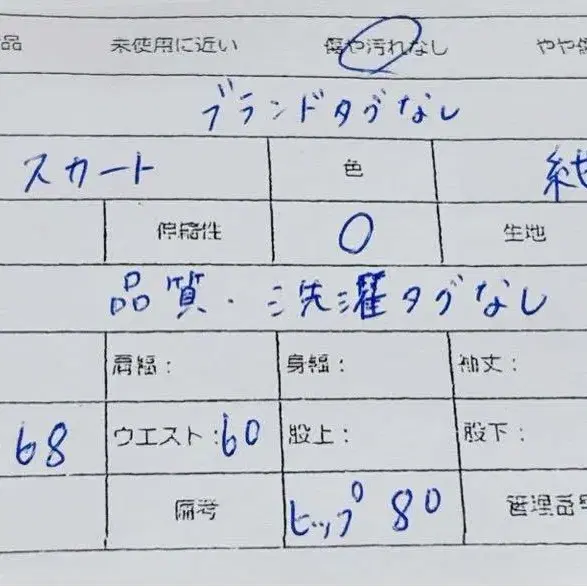 品 未使用に近い 傷や汚れなし やや傷
ブランドタグなし
スカート 色
伸縮性 0 生地
品質・洗濯タグなし
肩幅： 身幅： 袖丈：
68 ウエスト：60 股上： 股下：
備考 ヒップ 80 管理番号